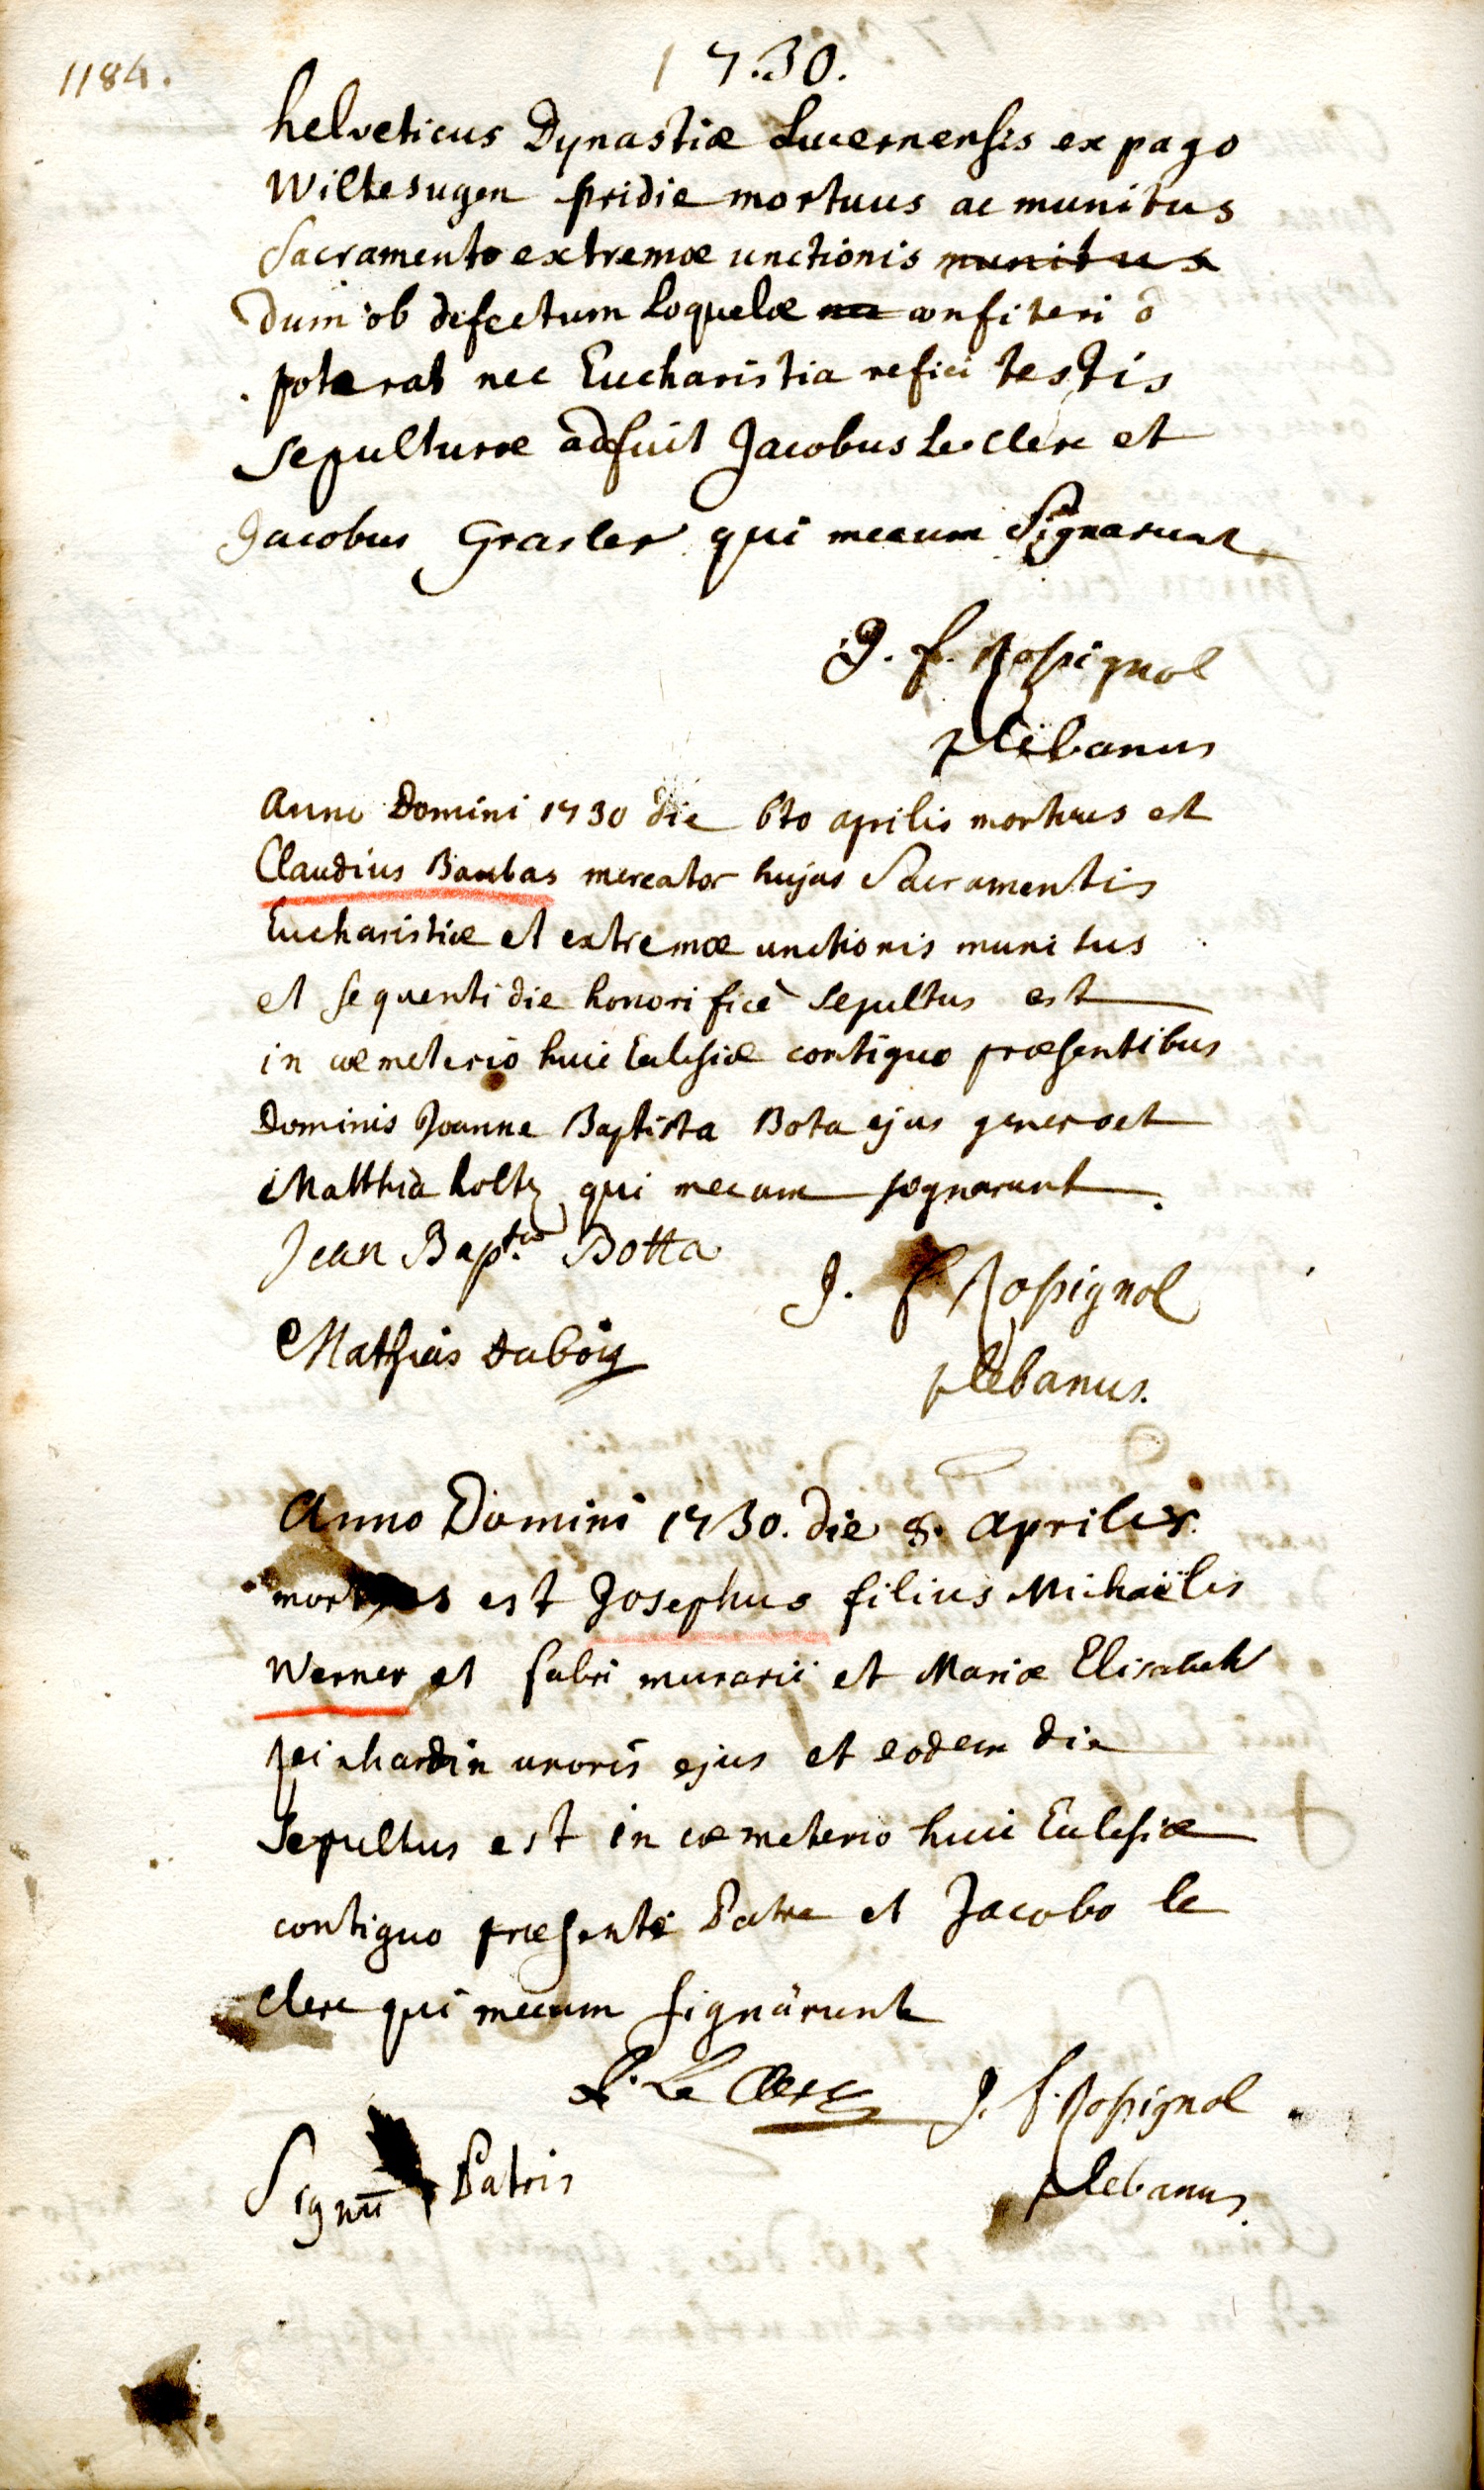 1184.
1730.
helveticus Dynastiæ Lucernensis ex pago
Wiltesugen pridie mortuus ac munitus
Sacramento extremæ unctionis munitus
dum ob defectum Loquelæ confiteri ō
poterat nec Eucharistia refici testis
sepulturæ adfuit Jacobus Le Clerc et
Jacobus Grasler qui mecum Signarunt
J. f. Rossignol
plebanus
Anno Domini 1730 die 6to aprilis mortuus est
Claudius Baubas mercator hujas Sacramentis
Eucharistiæ et extremæ unctionis munitus
et sequenti die honorificè sepultus est
in cœmeterio huic Ecclesiæ contiguo præsentibus
Dominis Joanne Baptista Bota ejus genero et
Matthia holtz qui mecum signarunt.
Jean Bapte Botta
J. f Rossignol
Mathias
plebanus.
Anno Domini 1730. die 8. Aprilis.
mortuus est Josephus filius Michaëlis
Werner et fabri murarii et Mariæ Elisabeth
Reinhardin uxoris ejus et eodem die
Sepultus est in cœmeterio huic Ecclesiæ
contiguo præsente Patre et Jacobo le
clerc qui mecum signârunt
Le Clerc
J. f. Rossignol
Signū Patris
plebanus.